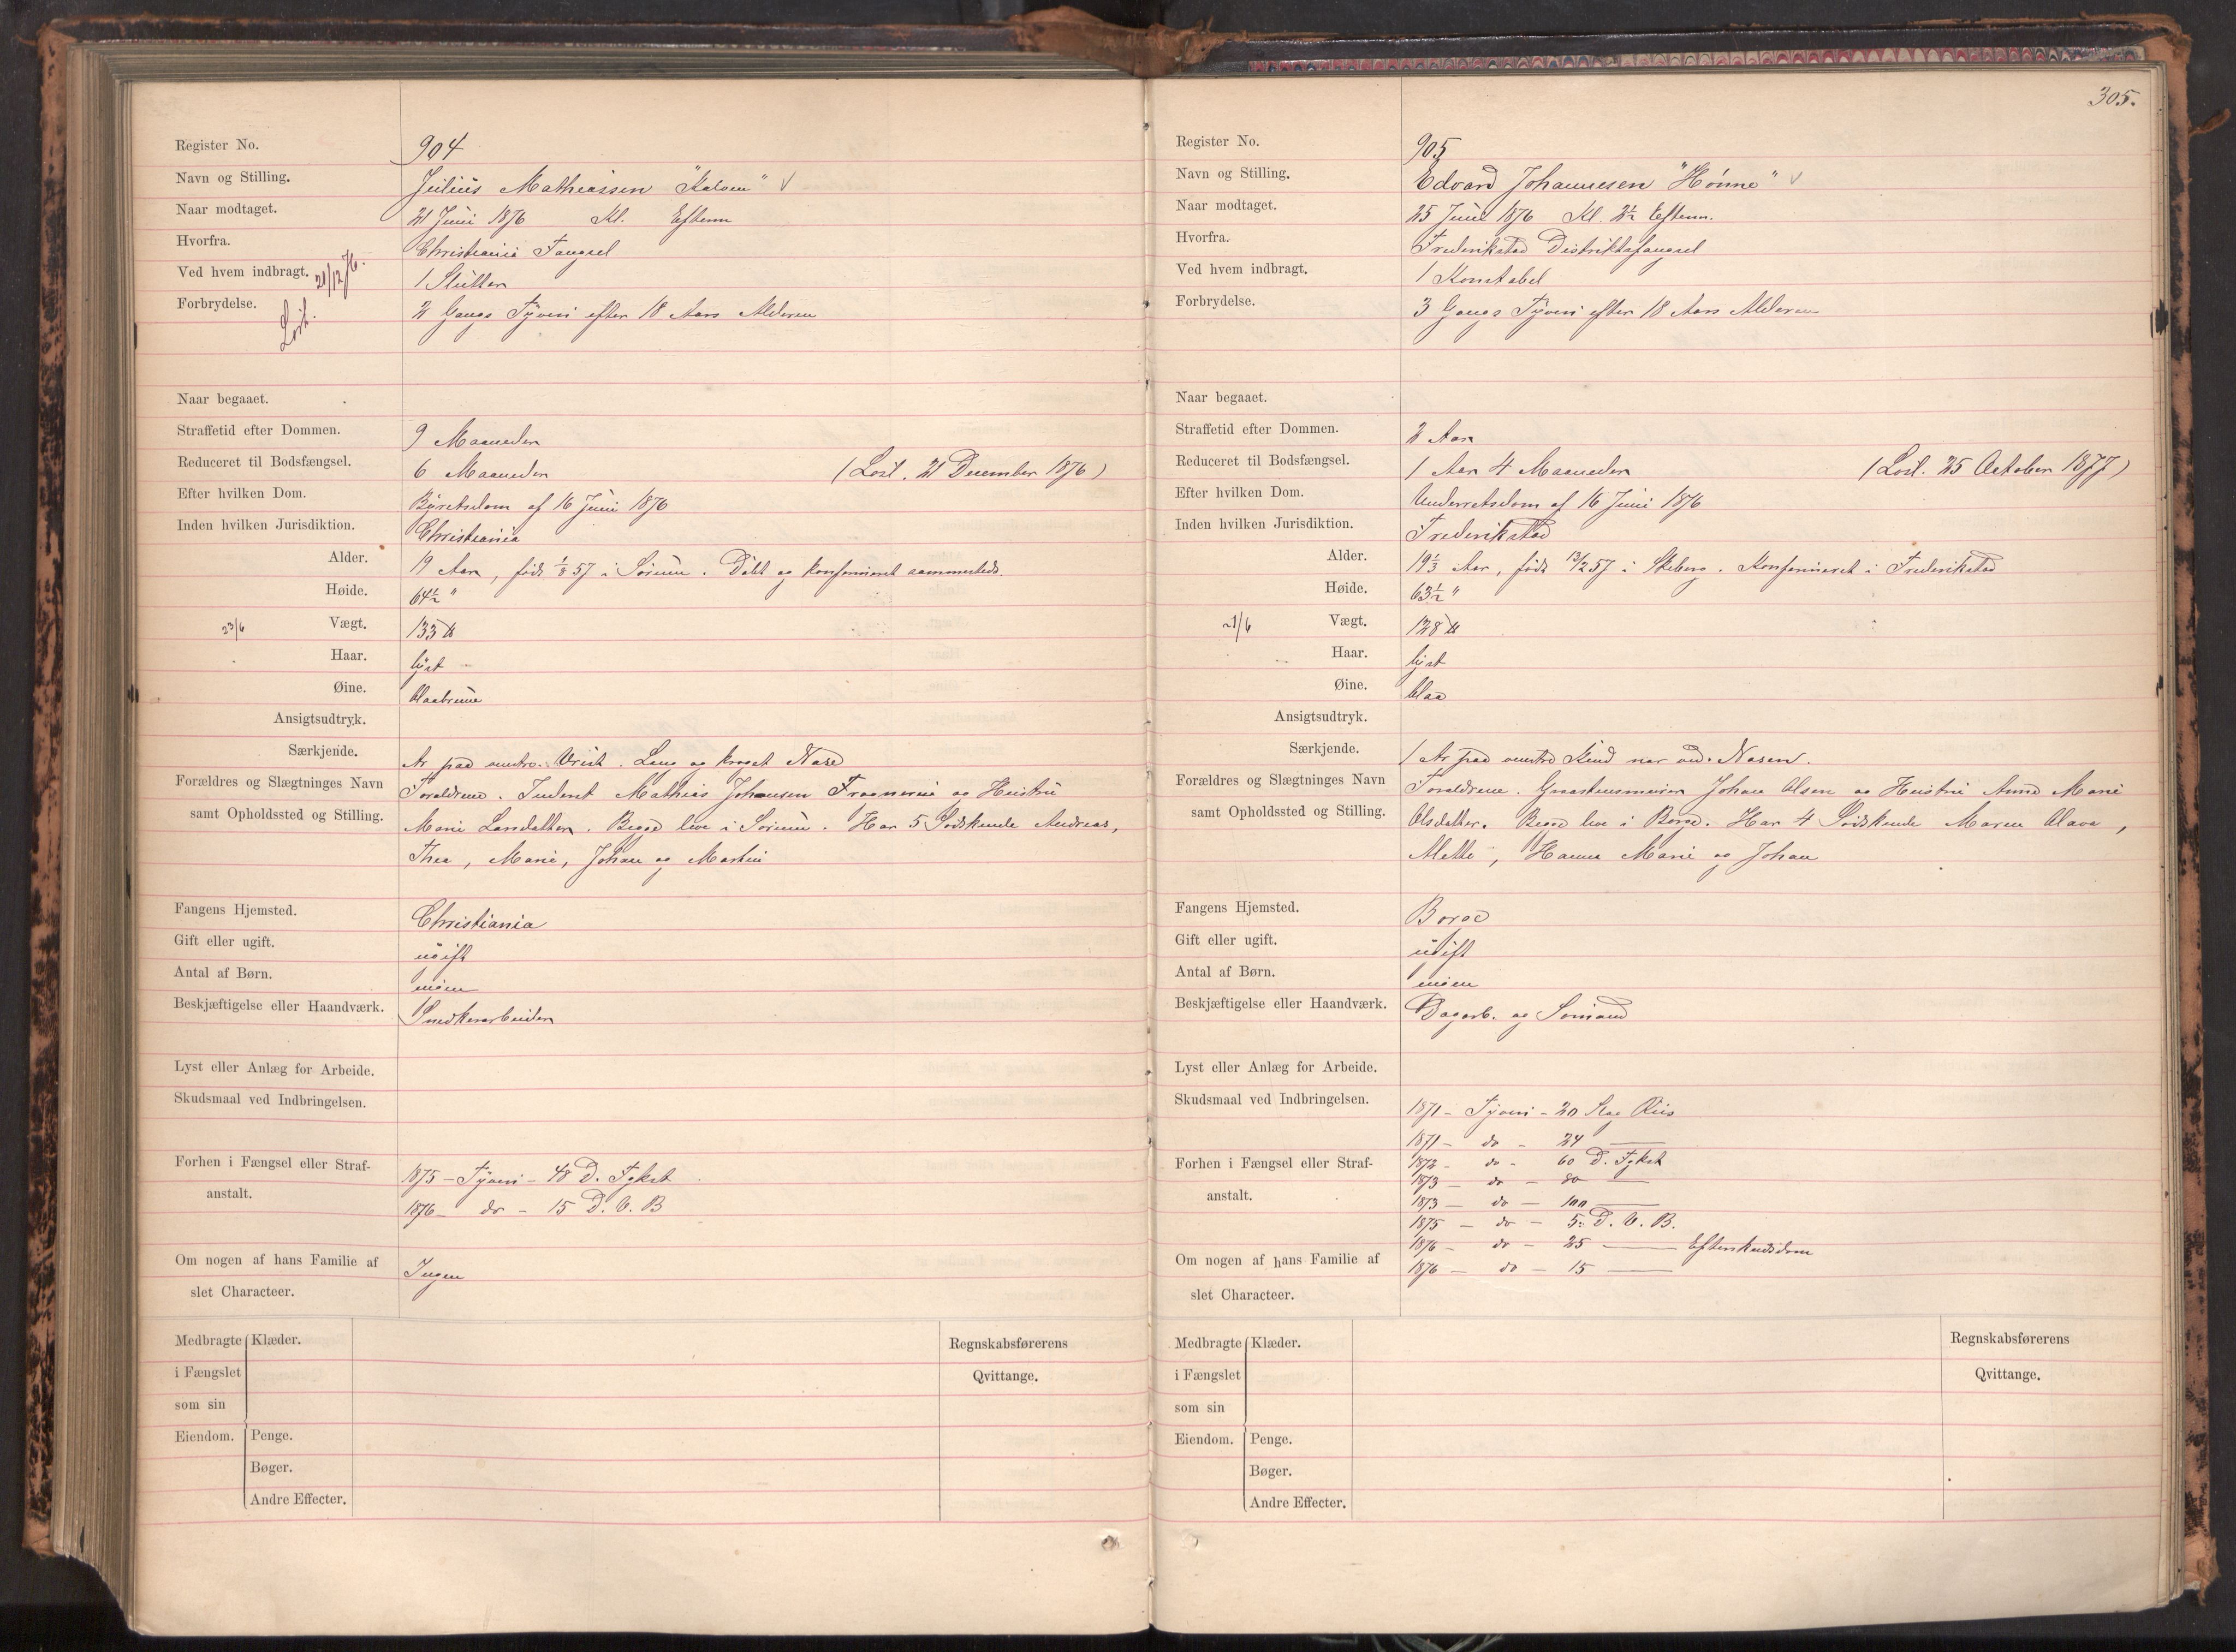 Register No. 904
Navn og Stilling. Julius Mathiassen "Kalven" V
Naar modtaget. 21 Juni 1876 Kl. Efterm
Hvorfra. Christiania Fængsel
Ved hvem indbragt. 21/12 76. 1 Slutter
Forbrydelse. Løsl. 2 Gangs Tyveri efter 18 Aars Alderen
Naar begaaet.
Straffetid efter Dommen. 9 Maaneder
Reduceret til Bodsfængsel. 6 Maaneder (Løsl. 21 December 1876)
Efter hvilken Dom. Byretsdom af 16 Juni 1876
Inden hvilken Jurisdiktion. Christiania
Alder. 19 Aar, født 1/8 57 i Sørum. Døbt og konfirmeret sammesteds.
Høide. 64½ "
23/6 Vægt. 133 ℔
Haar. lyst
Øine. blaabrune
Ansigtsudtryk.
Særkjende. Ar paa venstre Vrist. Lang og kroget Næse
Forældres og Slægtninges Navn Forældrene. Inderst Mathias Johansen og Hustru
samt Opholdssted og Stilling. Marie Larsdatter. Begge leve i Sørum. Har 5 Sødskende Andreas,
Thea, Marie, Johan og Martin
Fangens Hjemsted. Christiania
Gift eller ugift. ugift
Antal af Børn. ingen
Beskjæftigelse eller Haandværk. Snedkerarbeider
Lyst eller Anlæg for Arbeide.
Skudsmaal ved Indbringelsen.
Forhen i Fængsel eller Straf- 1875 – Tyveri – 48 D. Fgkst
anstalt. 1876 – do – 15 D. V. B
Om nogen af hans Familie af Ingen
slet Characteer.
Medbragte Klæder. Regnskabsførerens
i Fængslet Qvittange.
som sin
Eiendom. Penge.
Bøger.
Andre Effecter.
305.
Register No. 905
Navn og Stilling. Edvard Johannesen "Hønne" V
Naar modtaget. 25 Juni 1876 Kl. 2½ Efterm.
Hvorfra. Frederikstad Distriktsfængsel
Ved hvem indbragt. 1 Konstabel
Forbrydelse. 3 Gangs Tyveri efter 18 Aars Alderen
Naar begaaet.
Straffetid efter Dommen. 2 Aar
Reduceret til Bodsfængsel. 1 Aar 4 Maaneder (Løsl. 25 October 1877)
Efter hvilken Dom. Underretsdom af 16 Juni 1876
Inden hvilken Jurisdiktion. Frederikstad
Alder. 19⅓ Aar, født 13/2 57 i Skeberg. Konfirmeret i Frederikstad
Høide. 63½ "
Vægt. 128 ℔
Haar. lyst
Øine. blaa
Ansigtsudtryk.
Særkjende. 1 Ar paa venstre Kind nær ved Næsen.
Forældres og Slægtninges Navn Forældrene. Johan Olsen og Hustru Anne Marie
samt Opholdssted og Stilling. Olsdatter. Begge leve i Borge. Har 4 Sødskende Maren Olava,
Alette, Hanna Marie og Johan
Fangens Hjemsted. Borge
Gift eller ugift. ugift
Antal af Børn. ingen
Beskjæftigelse eller Haandværk. Dagarb. og Sømand
Lyst eller Anlæg for Arbeide.
Skudsmaal ved Indbringelsen. 1871 – Tyveri – 20 Slag Riis
1871 – do – 24 —
Forhen i Fængsel eller Straf- 1872 – do – 60 D. Fgkst
1873 – do – 80 —
anstalt. 1873 – do – 100 —
1875 – do – 5 D. V. B.
1876 – do – 25 — Efterskudsdom
Om nogen af hans Familie af 1876 – do – 15 —
slet Characteer.
Medbragte Klæder. Regnskabsførerens
i Fængslet Qvittange.
som sin
Eiendom. Penge.
Bøger.
Andre Effecter.